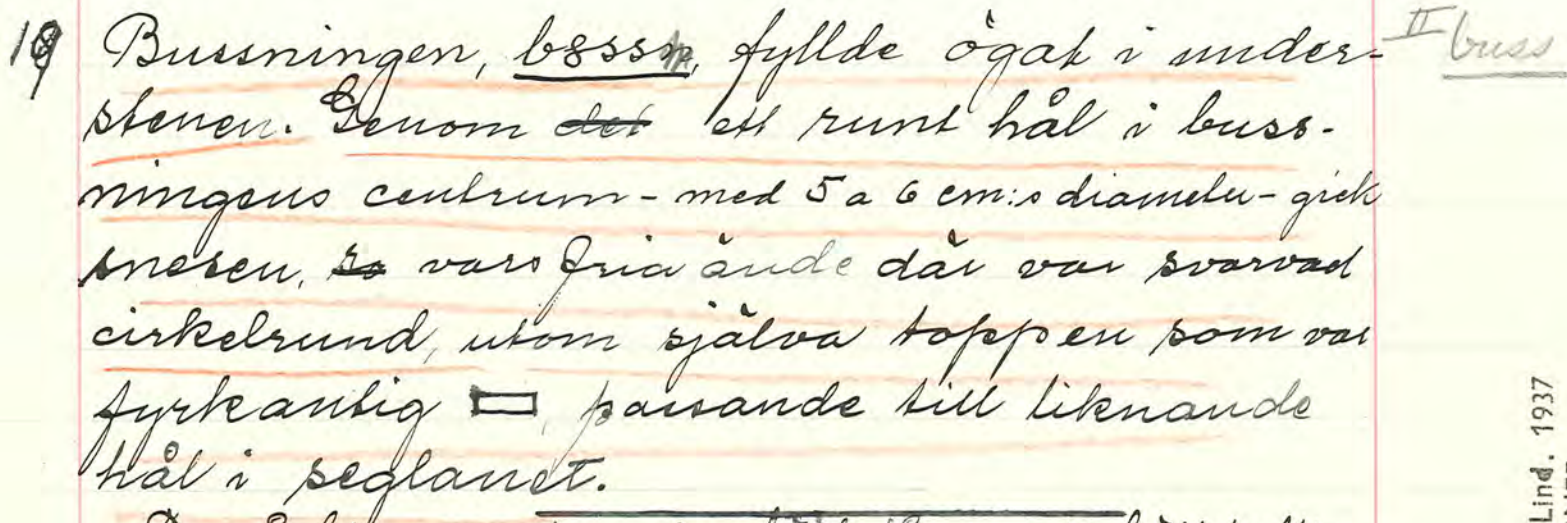 19 Bussningen, b8ssn, fyllde ögat i under- II buss
stenen. Genom det ett runt hål i buss-
ningens centrum - med 5 a 6 cm:s diameter - gick
snesen, so vars fria ände där var svarvad
cirkelrund, utom själva toppen som var
fyrkantig, passande till liknande
hål i seglanet.
Lind. 1937